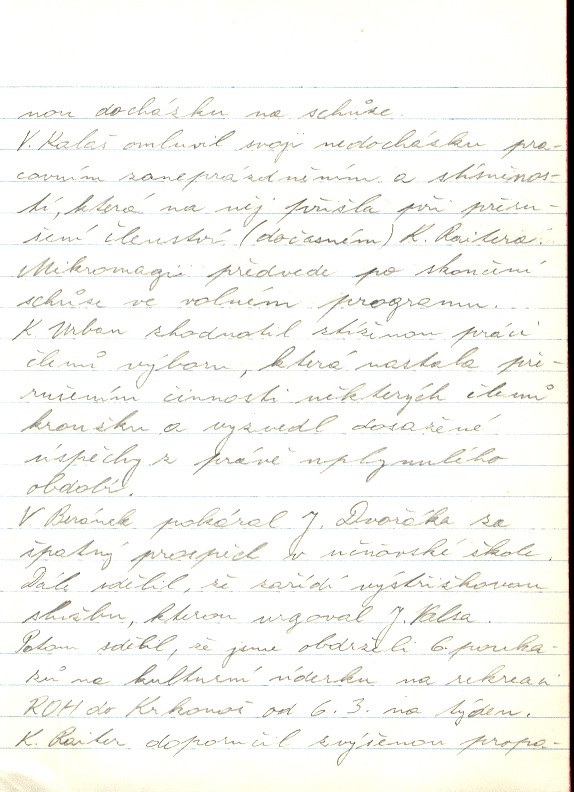 nou docházku na schůze.
V. Kalaš omluvil svoji nedocházku pra-
covním zaneprázdněním a stísněnos-
tí, která na něj přišla při přeru-
šení členství (dočasném) K. Raitera.
Mikromagii předvede po skončení
schůze ve volném programu.
K. Urban zhodnotil ztíženou práci
členů výboru, která nastala pře-
rušením činnosti některých členů
kroužku a vyzvedl dosažené
úspěchy z právě uplynulého
období.
V Beránek pokáral J. Dvořáka za
špatný prospěch v učňovské škole.
Dále sdělil, že zařídí výstřižkovou
službu, kterou urgoval J. Valsa.
Potom sdělil, že jsme obdrželi 6 pouka-
zů na kulturní úderku na rekreaci
ROH do Krkonoš od 6. 3. na týden.
K. Raiter doporučil zvýšenou propa-